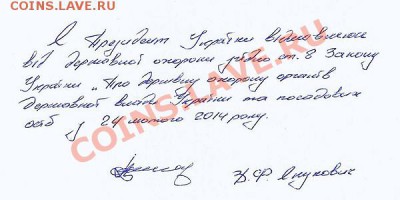 COINS.LAVE.RU
Я Президент України відмовляюсь
від державної охорони згідно ст. 8 Закону
України „Про державну охорону органів
Державної влади України та посадових
осіб" 24 лютого 2014 року.
В.Ф. Янукович
COINS.LAVE.RU
COINS.LAVE.RU